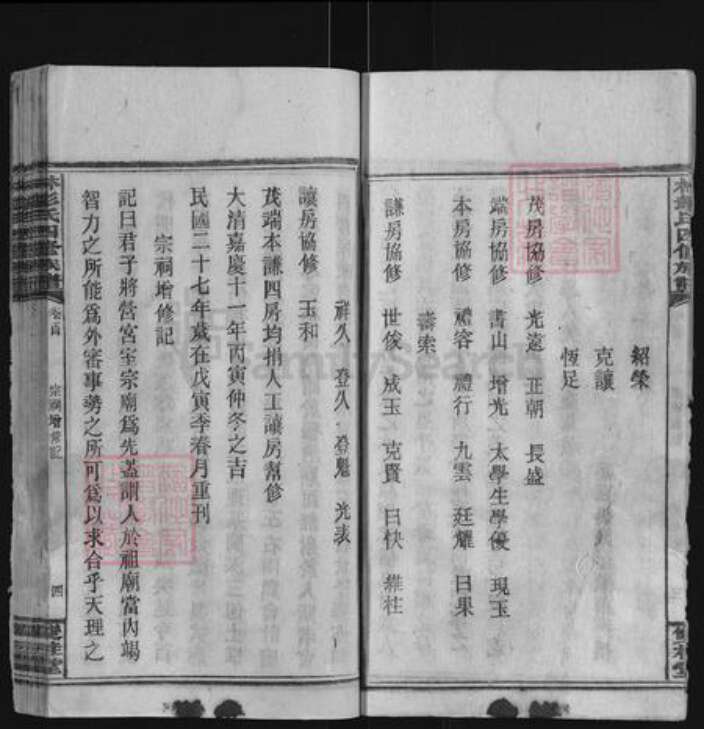 紹榮
克讓
恆足
茂房協修 光遠 正朝 長盛
端房協修 書山 增光 太學生學優 現玉
本房協修 禮容 體行 九雲 廷耀 日杲
壽索
謙房協修 世俊 成玉 克賢 日快 維柱
祥久 登久 登魁 光表
讓房協修 玉和
茂端本謙四房均捐人工讓房幫修
大清嘉慶十一年丙寅仲冬之吉
民國二十七年歲在戊寅季春月重刊
宗祠增修記
記曰君子將營宮室宗廟爲先蓋謂人於祖廟當內竭
智力之所能爲外審事勢之所可爲以求合乎天理之
彭氏四修族譜
卷首 宗祠增修記
四
FamilySearch